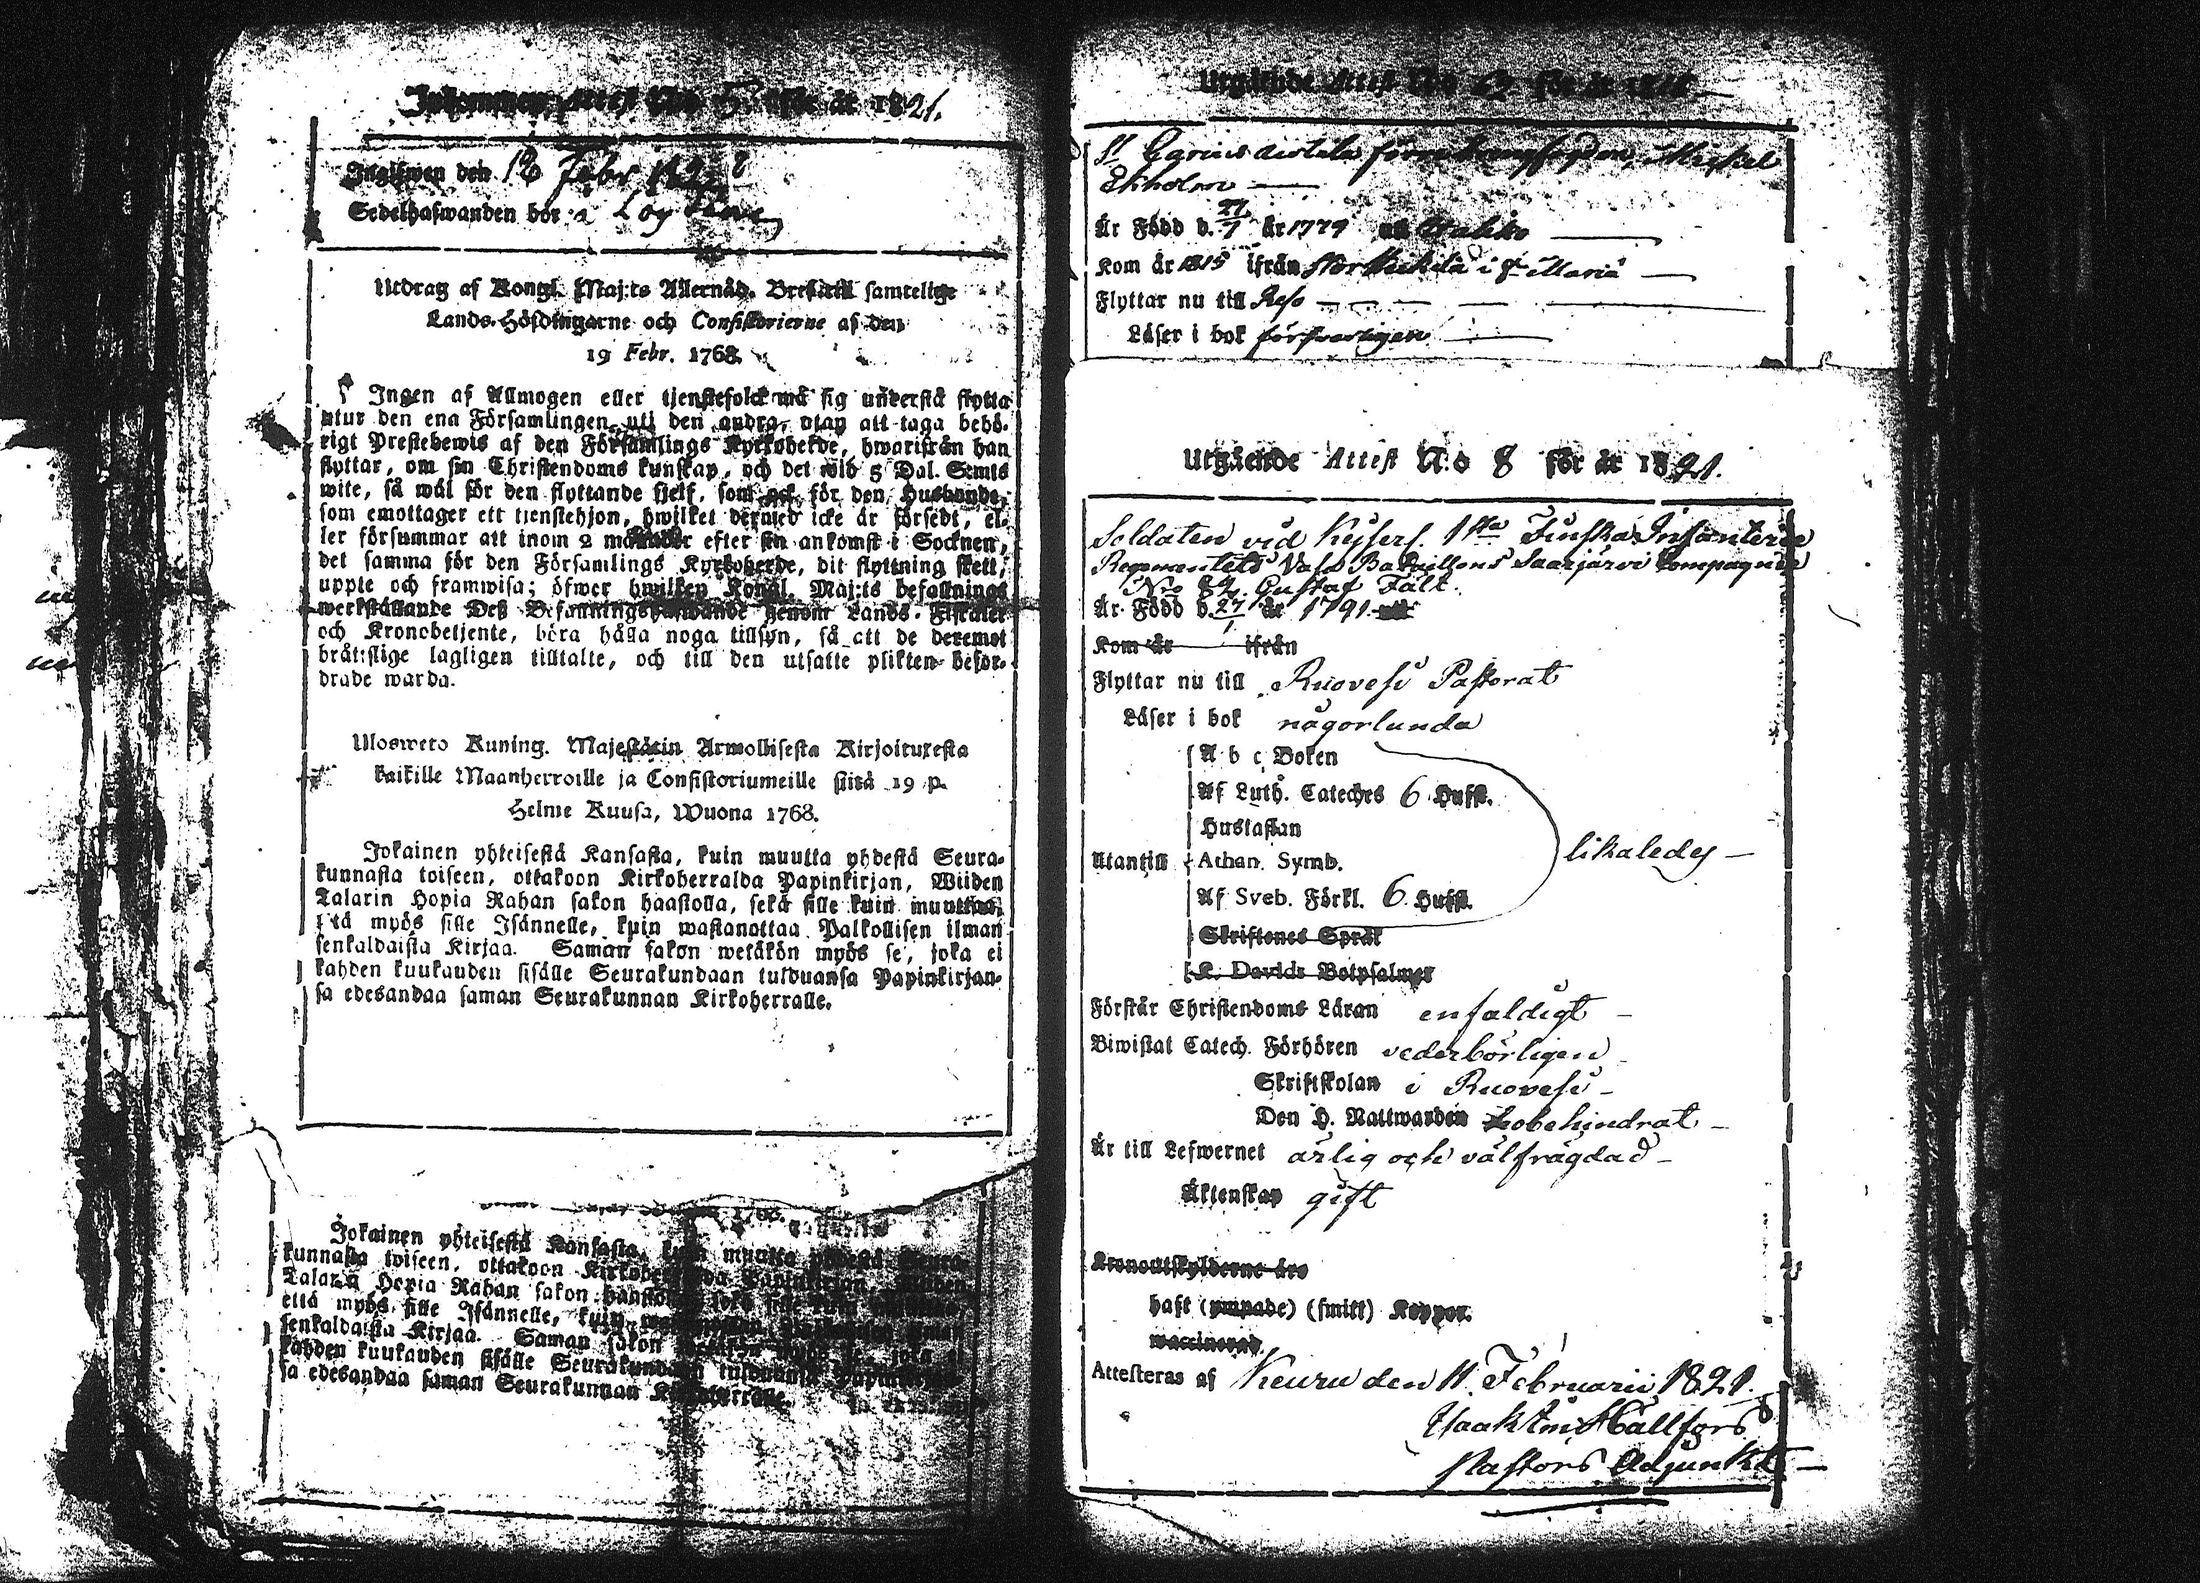 Inkommen Attest N:o 5 för år 1821.
Ingifwen den 18 Febr
Sedelhafwanden bor i
Utdrag af Kongl. Maj:ts Allernåd. Bref till samtelige
Lands-Höfdingarne och Consistorierne af den
19 Febr. 1768.
Ingen af Allmogen eller tjenstefolck må sig understå flytta
utur den ena Församlingen uti den andra, utan att taga behö-
rigt Prestebewis af den Församlings Kyrkoherde, hwarifrån han
flyttar, om sin Christendoms kunskap, och det wid 5 Dal. S:mts
wite, så wäl för den flyttande sjelf, som ock för den Husbonde,
som emottager ett tjenstehjon, hwilket dermed icke är försedt, el-
ler försummar att inom 2 månader efter sin ankomst i Socknen,
det samma för den Församlings Kyrkoherde, dit flyttning skett,
uppte och framwisa; öfwer hwilken Kongl. Maj:ts befallnings
werkställande Deß Befallningshafwande genom Lands-Fiskaler
och Kronobetjente, böra hålla noga tillsyn, så att de deremot
bråtslige lagligen tilltalte, och till den utsatte plikten beför-
drade warda.
Ulosweto Kuning. Majestätin Armollisesta Kirjoituxesta
kaikille Maanherroille ja Consistoriumeille siitä 19 p.
Helme Kuusa, Wuona 1768.
Jokainen yhteisestä Kansasta, kuin muutta yhdestä Seura-
kunnasta toiseen, ottakoon Kirkoherralda Papinkirjan, Wiiden
Talarin Hopia Rahan sakon haastolla, sekä sille kuin muuttaa,
että myös sille Isännelle, kuin wastanottaa Palkollisen ilman
senkaldaista Kirjaa. Saman sakon wetäkön myös se, joka ei
kahden kuukauden sisälle Seurakundaan tulduansa Papinkirjan-
sa edesandaa saman Seurakunnan Kirkoherralle.
Jokainen yhteisestä Kansasta, kuin muutta yhdestä Seura-
kunnasta toiseen, ottakoon Kirkoherralda Papinkirjan, Wiiden
Talarin Hopia Rahan sakon haastolla, sekä sille kuin
että myös sille Isännelle, kuin
senkaldaista Kirjaa. Saman sakon wetäkön myös se, joka ei
kahden kuukauden sisälle Seurakundaan tulduansa Papinkirjan-
sa edesandaa saman Seurakunnan Kirkoherralle.
Utgående Attest N:o för år
Michel
Ekholm
Är Född d. 27/7 år 1779
Kom år 1815 ifrån i St Mariä
Flyttar nu till Reso
Läser i bok försvarligen
Utgående Attest N:o 8 för år 1821.
Soldaten vid Keiserl. 1sta Finska Infanterie
Regementets Vasa Bataillons Saarjärvi Compagnie
Nro 84. Gustaf Fält.
Är Född d. 27/1 år 1791.
Kom år ifrån
Flyttar nu till Ruovesi Pastorat
Läser i bok någorlunda
A b c Boken
Af Luth. Cateches 6 Hufst.
Hustaflan
Utantill Athan. Symb.
likaledes
Af Sveb. Förkl. 6 Hufst.
Skriftenes Språk
K. Davids Botpsalmer
Förstår Christendoms Läran enfaldigt
Biwistat Catech. Förhören vederbörligen
Skriftskolan i Ruovesi
Den H. Nattwarden obehindrat
Är till Lefwernet ärlig och välfrägdad
Äktenskap gift
Kronoutskylderne äro
haft (ympade) (smitt) Koppor.
waccinerad
Attesteras af Keuru den 11 Februarii 1821.
Isaak Em: Hällfors
Pastors Adjunkt